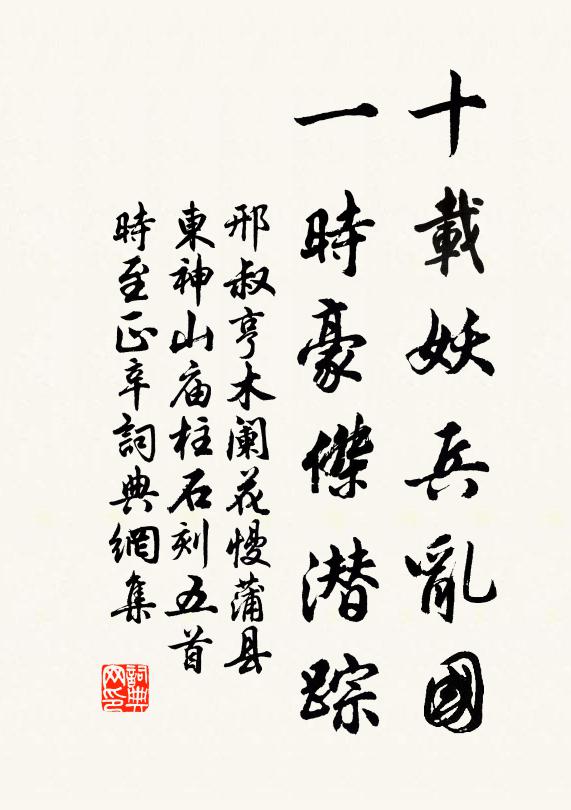 十載妖兵亂國
一時豪傑潜踪
邢叔亨木阑花慢蒲县
東神山庙柱石刻五首
時至正辛詞典網集
詞典网印